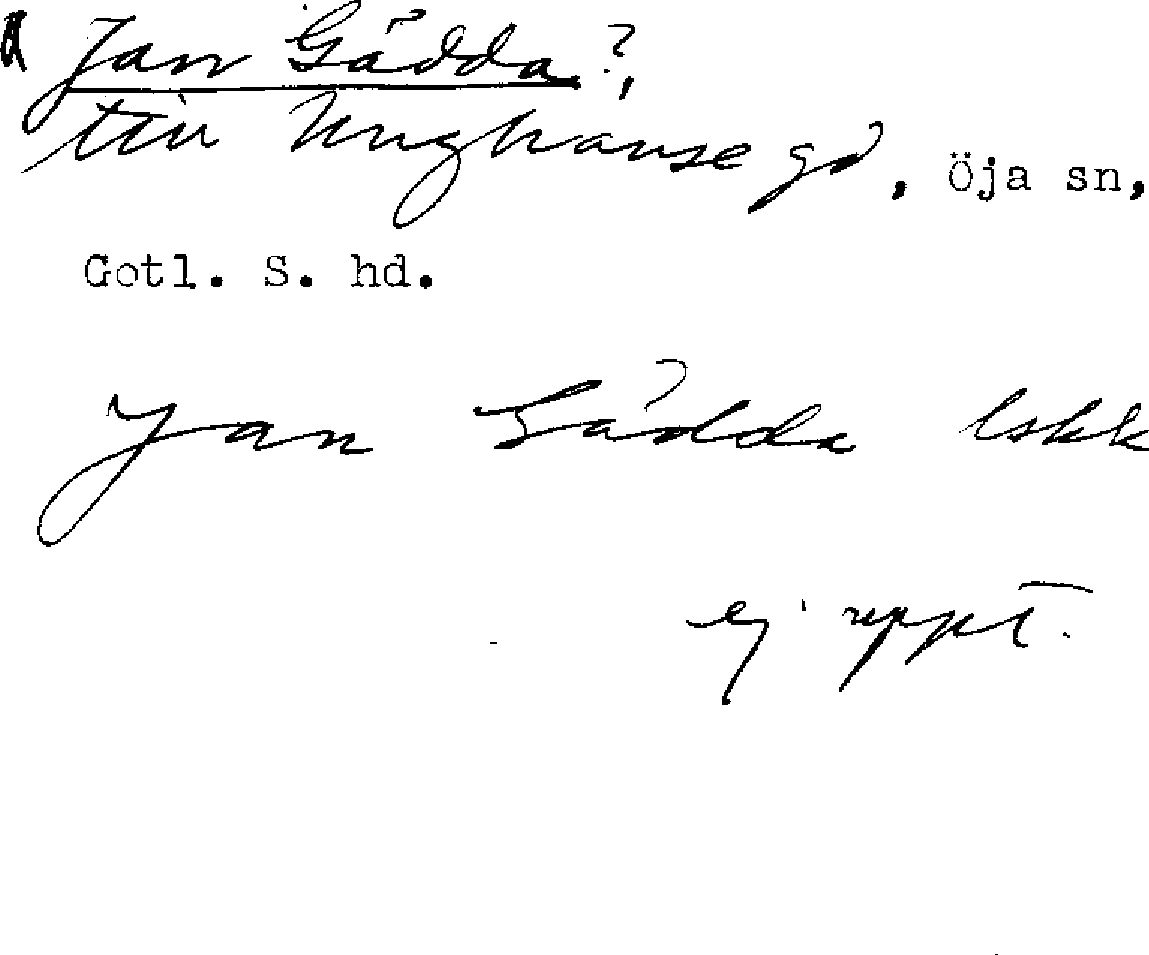 Jan Gädda?,
till Unghanse gd, Öja sn,
Gotl. S. hd.
Jan Gädda lskk
ej uppt.